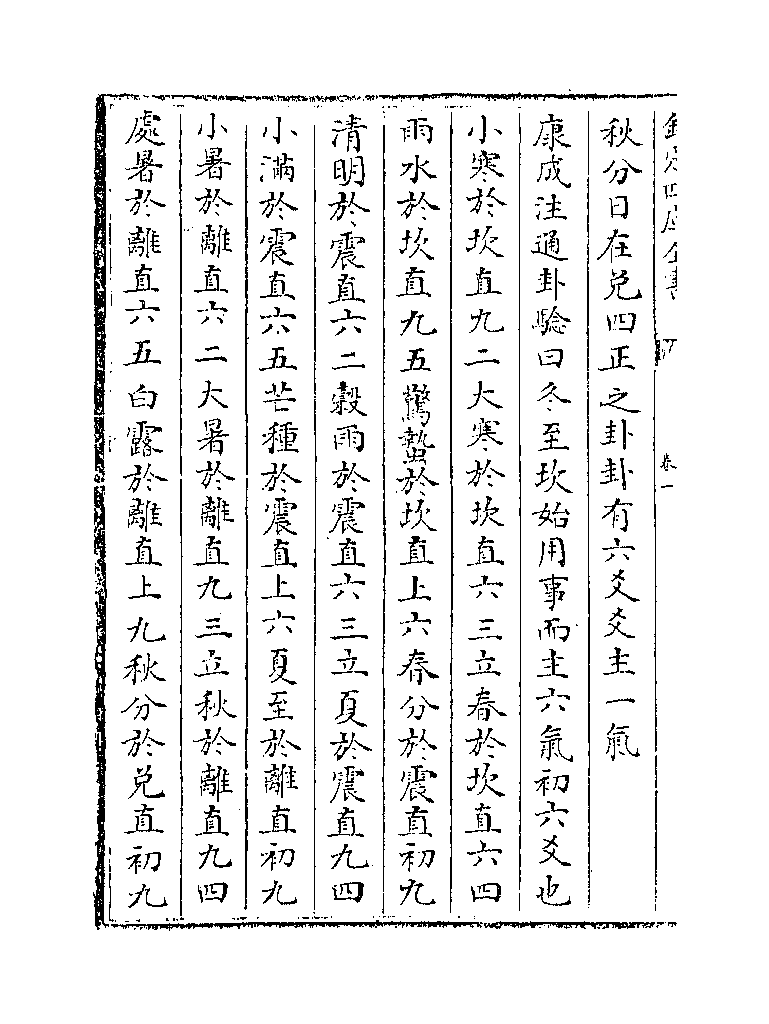 欽定四庫全書
卷一
秋分日在兌四正之卦卦有六爻爻主一氣
康成注通卦驗曰冬至坎始用事而主六氣初六爻也
小寒於坎直九二大寒於坎直六三立春於坎直六四
雨水於坎直九五驚蟄於坎直上六春分於震直初九
清明於震直六二榖雨於震直六三立夏於震直九四
小滿於震直六五芒種於震直上六夏至於離直初九
小暑於離直六二大暑於離直九三立秋於離直九四
處暑於離直六五白露於離直上九秋分於兌直初九